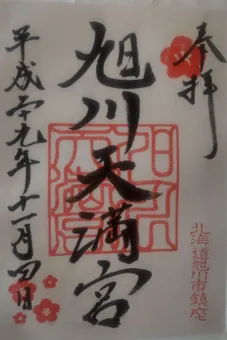 奉拝
北海道旭川市鎮座
旭川天満宮
平成二十九年十一月四日